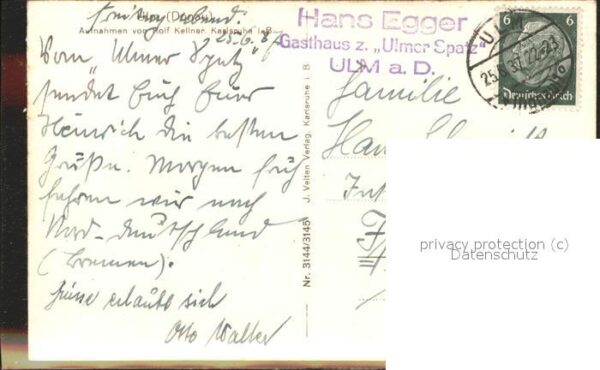 Ulm (Donau)
Aufnahmen von Rolf Kellner, Karlsruhe i. B.
Freitag abend.
25.6.37
Vom „Ulmer Spatz"
sendet Euch Euer
Heinrich die besten
Grüße. Morgen früh
fahren wir nach
Nord-Deutschland
(Bremen).
erlaubt sich
Otto Walter
Nr. 3144/3145 J. Velten Verlag, Karlsruhe i. B.
Hans Egger
Gasthaus z. „Ulmer Spatz"
ULM a. D.
Familie
ULM
25. 37. 22-23
6 6
Deutsches Reich
privacy protection (c)
Datenschutz